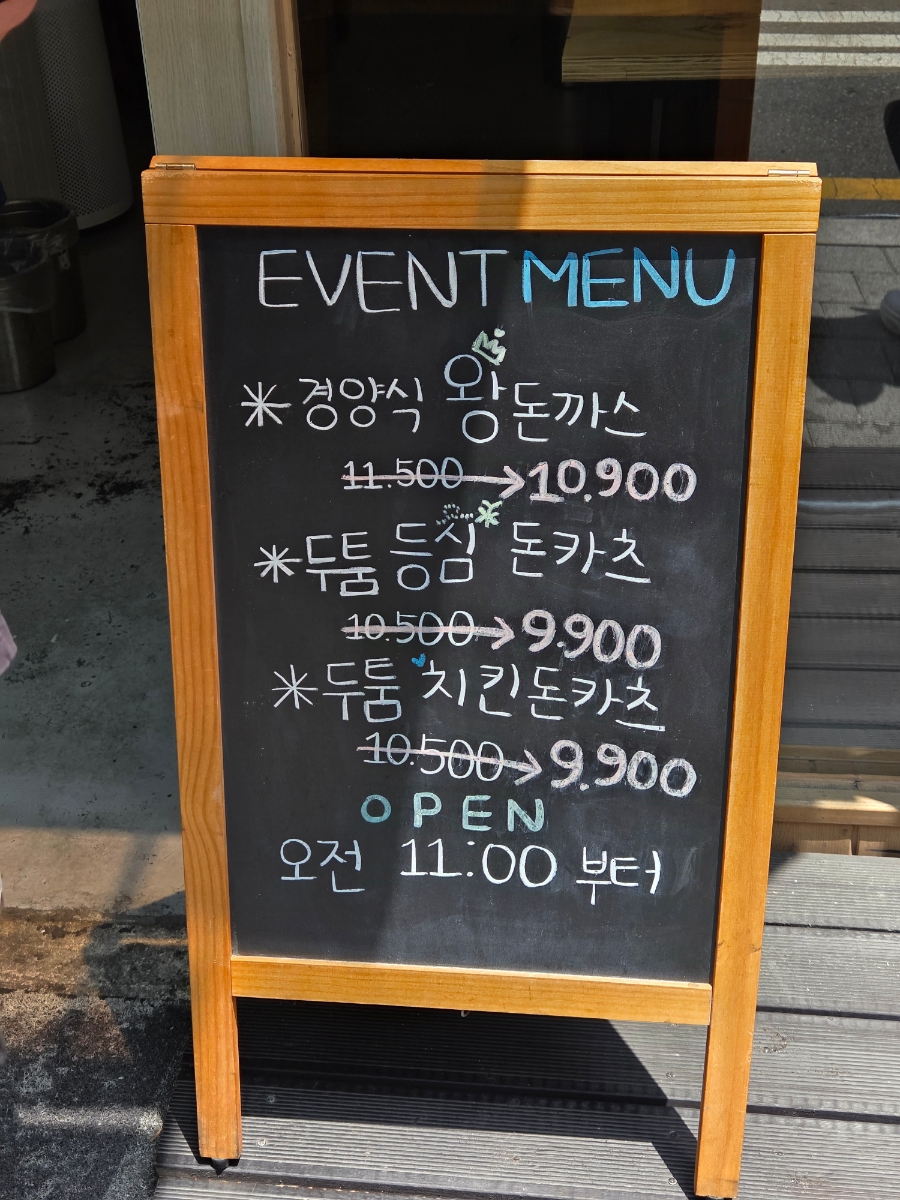 EVENT MENU
*경양식 왕돈까스
11.500→10.900
*두툼 등심 돈카츠
10.500→9.900
*두툼 치킨돈카츠
10.500→9.900
OPEN
오전 11:00 부터